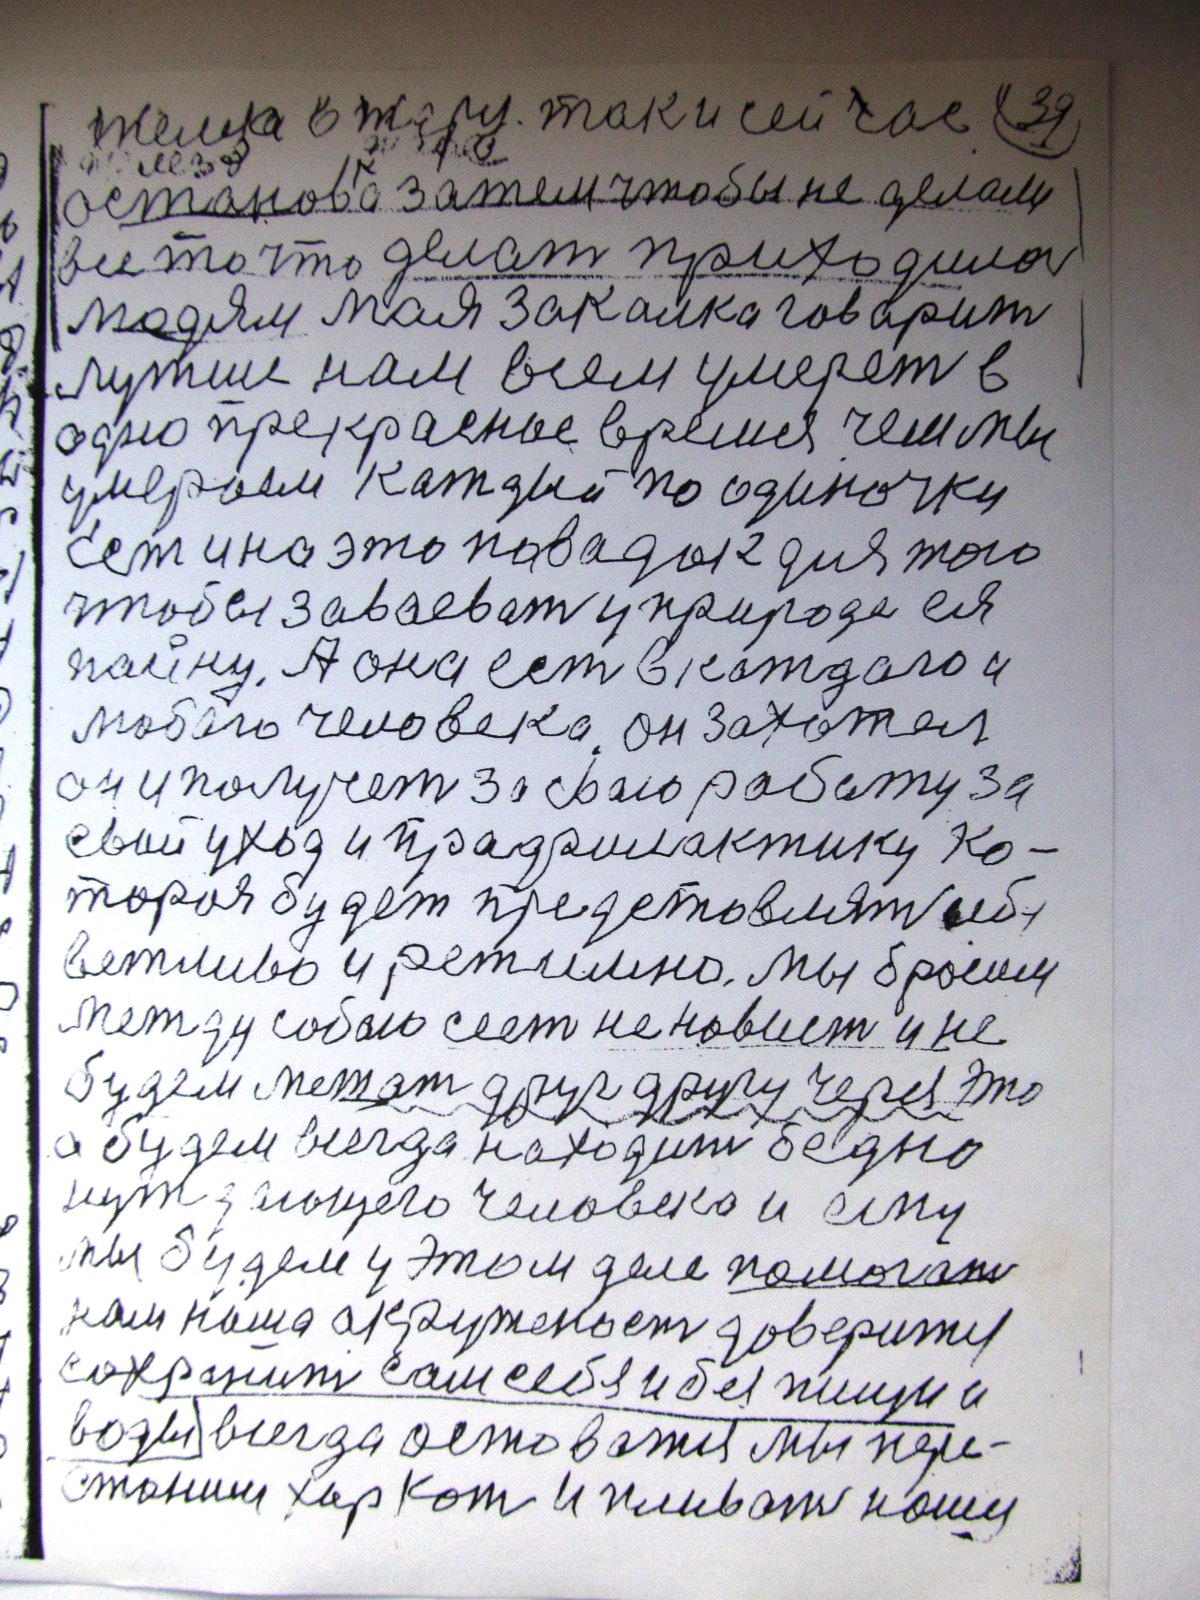 железа в жару. так и сейчас 39
останова затем чтобы не делали
все то что делат приходилос
людям мая закалка говарит
лутше нам всем умерет в
одно прекрасное время чем мы
умероем каждый по одиночки
ест и на это повадок для того
чтобы заваеват у природе ея
тайну. А она ест в каждаго и
любого человека. он захотел
он и получет за сваю работу за
свой уход и прафилактику ко-
торая будет предстовлят
ветливо и режимно. мы бросим
между собою сеет неновист и не
будем мешат друг другу через это
а будем всегда находит бедно
нуждающего человека и ему
мы будем у этом деле помогат
нам наша акружност доверит
сохранит сам себя и без пищи и
воды всегда остоватся мы пере-
станим харкот и пливат наши